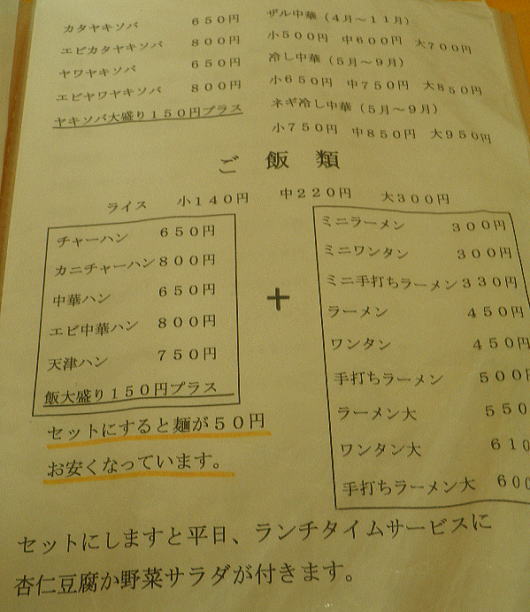 カタヤキソバ ６５０円
エビカタヤキソバ ８００円
ヤワヤキソバ ６５０円
エビヤワヤキソバ ８００円
ヤキソバ大盛り１５０円プラス
ザル中華（４月～１１月）
小５００円 中６００円 大７００円
冷し中華（５月～９月）
小６５０円 中７５０円 大８５０円
ネギ冷し中華（５月～９月）
小７５０円 中８５０円 大９５０円
ご飯類
ライス 小１４０円 中２２０円 大３００円
チャーハン ６５０円
カニチャーハン８００円
中華ハン ６５０円
エビ中華ハン ８００円
天津ハン ７５０円
飯大盛り１５０円プラス
＋
ミニラーメン ３００円
ミニワンタン ３００円
ミニ手打ちラーメン３３０円
ラーメン ４５０円
ワンタン ４５０円
手打ちラーメン ５００円
ラーメン大 ５５０
ワンタン大 ６１０
手打ちラーメン大 ６００
セットにすると麺が５０円
お安くなっています。
セットにしますと平日、ランチタイムサービスに
杏仁豆腐か野菜サラダが付きます。